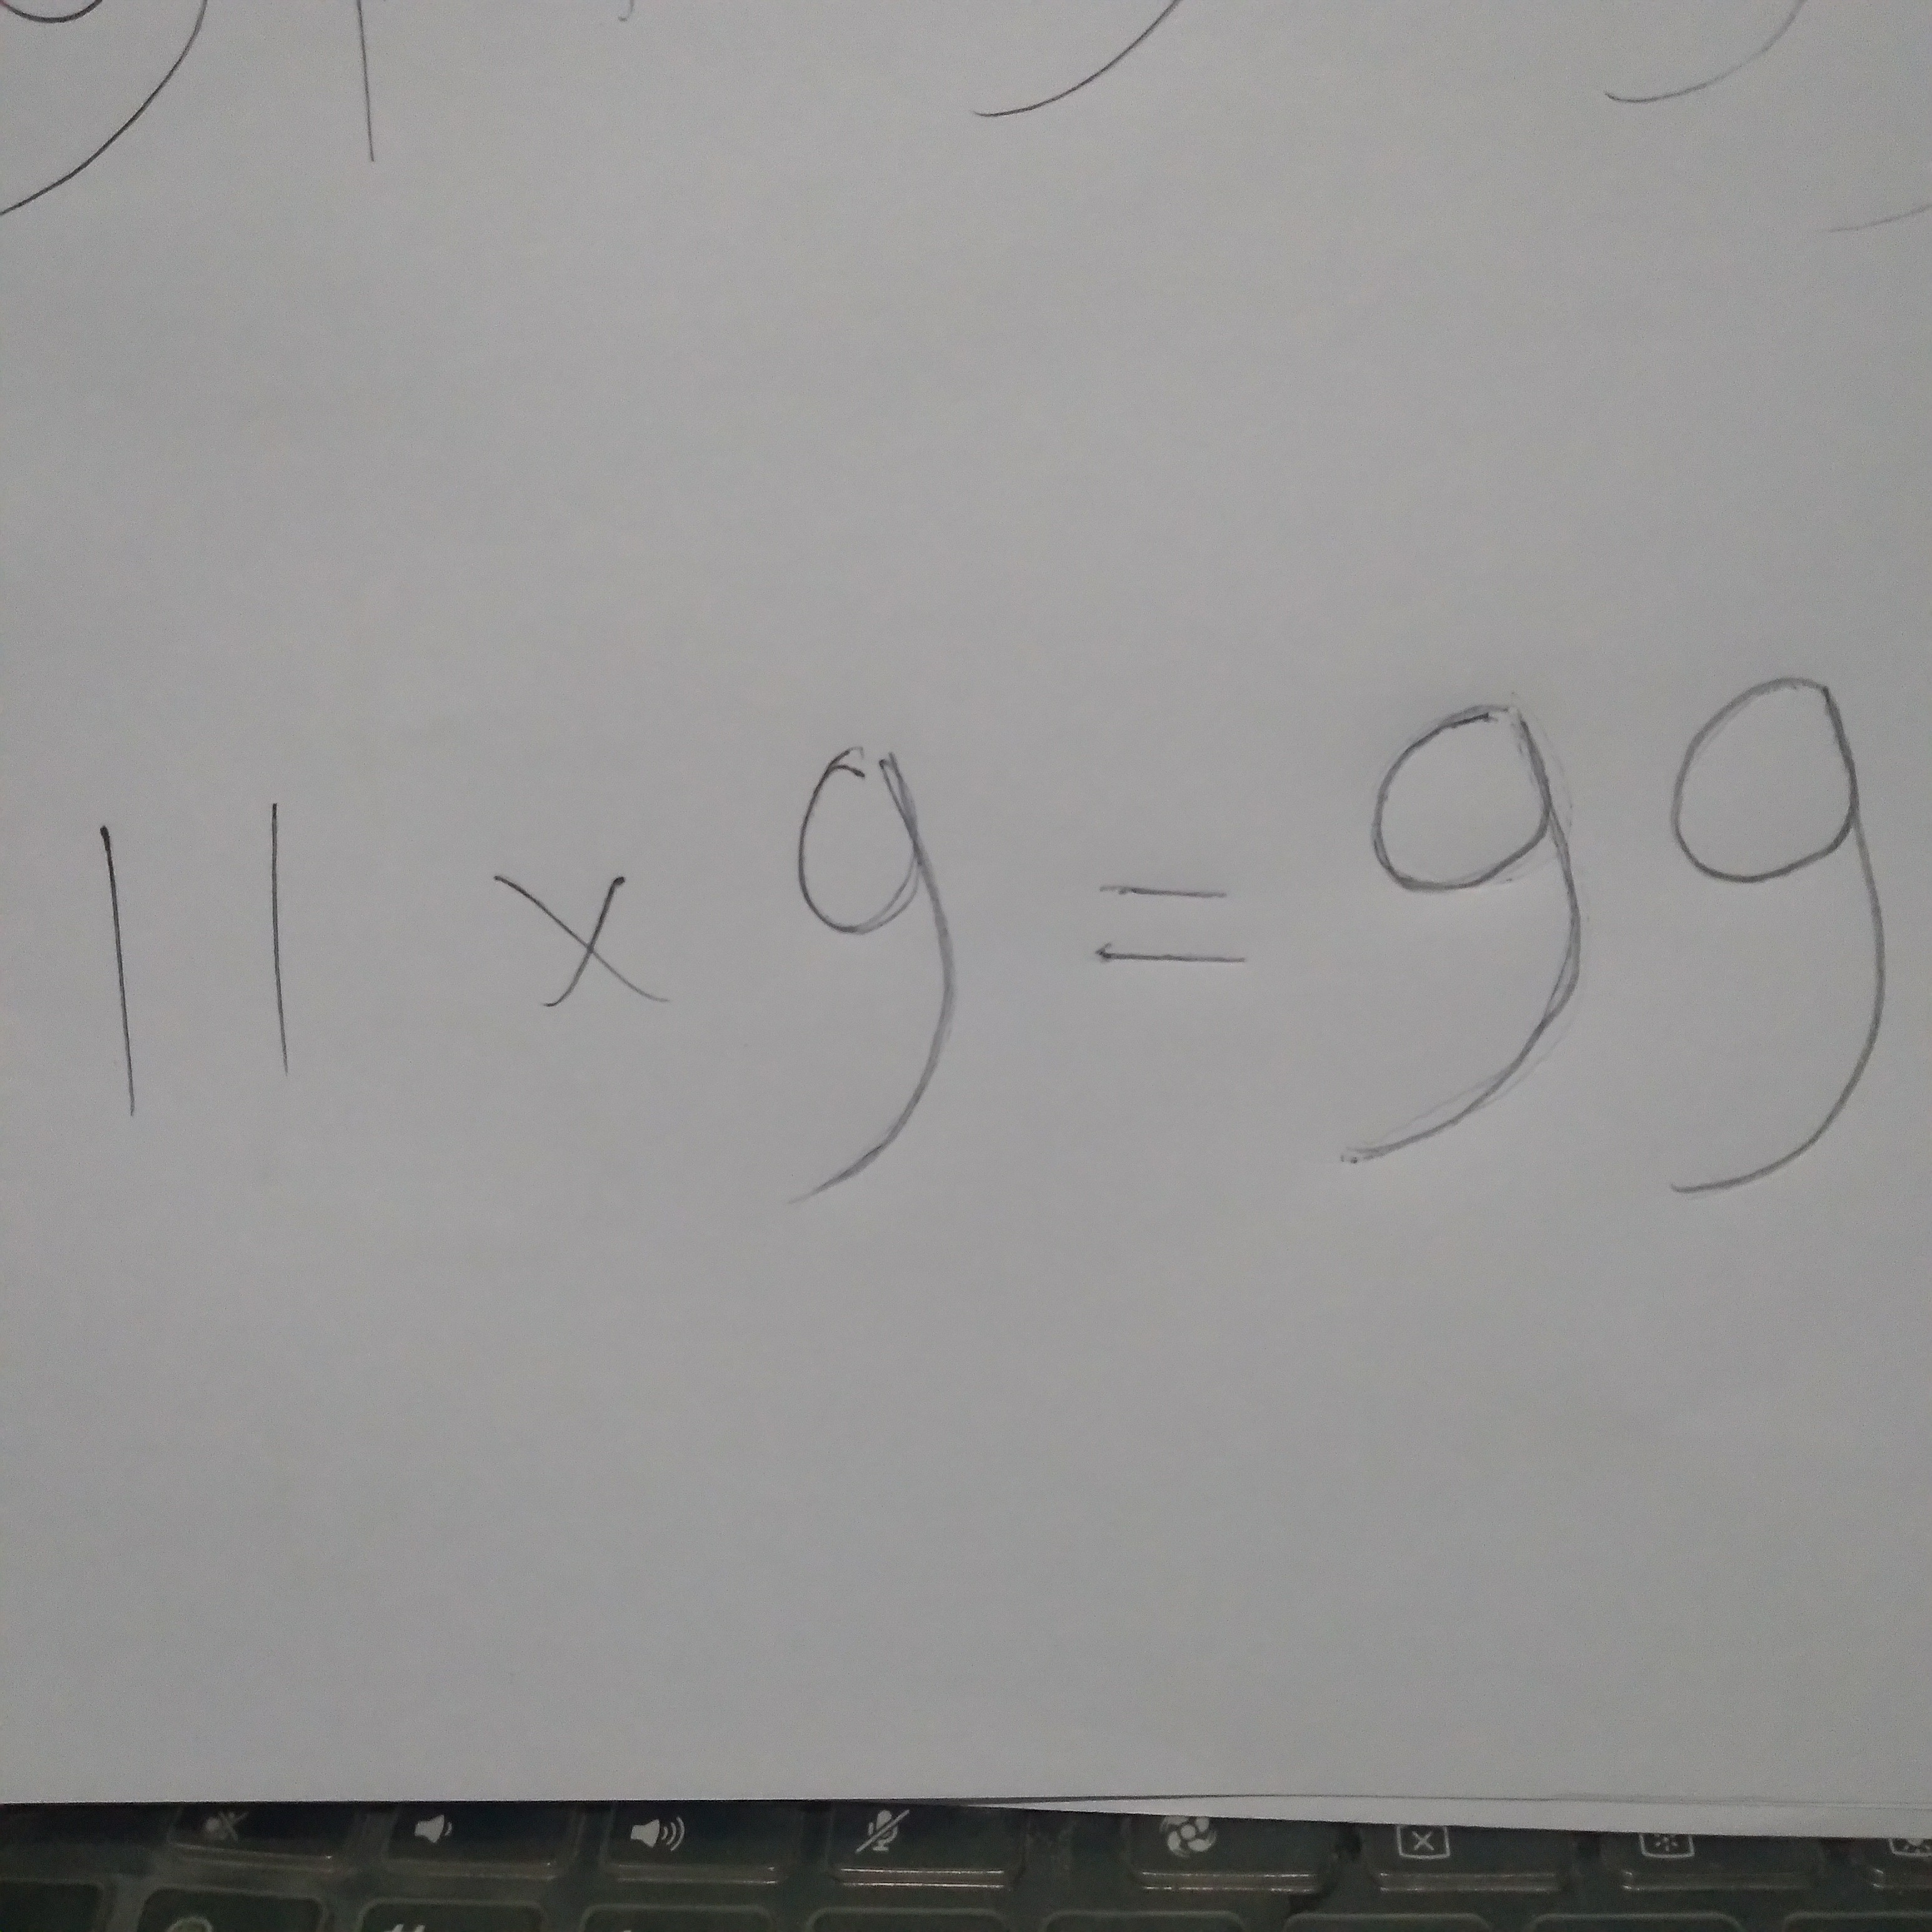 11 × 9 = 99